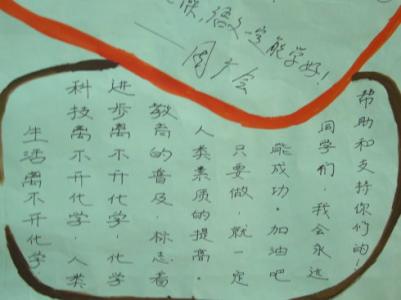 语文一定能学好!
——周广会
生活离不开化学
科技离不开化学,人类
进步离不开化学,化学
教育的普及,标志着
人类素质的提高。
只要做,就一定
能成功。加油吧
同学们,我会永远
帮助和支持你们的!